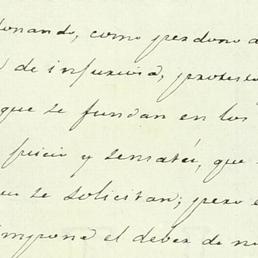 donando, como perdono a
de injuria, protesto
que se fundan en los
juicio y sensatéz, que
se solicitan; pero
impone el deber de